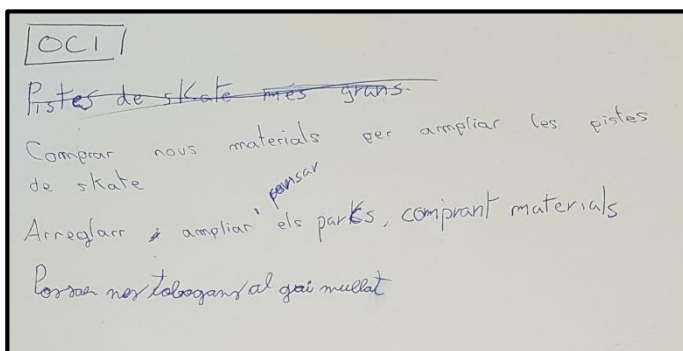 OCI
Pistes de skate més grans.
Comprar nous materials per ampliar les pistes
de skate
pensar
Arreglarr i ampliar els parks, comprant materials
Possar nos tobogans al gai mullat